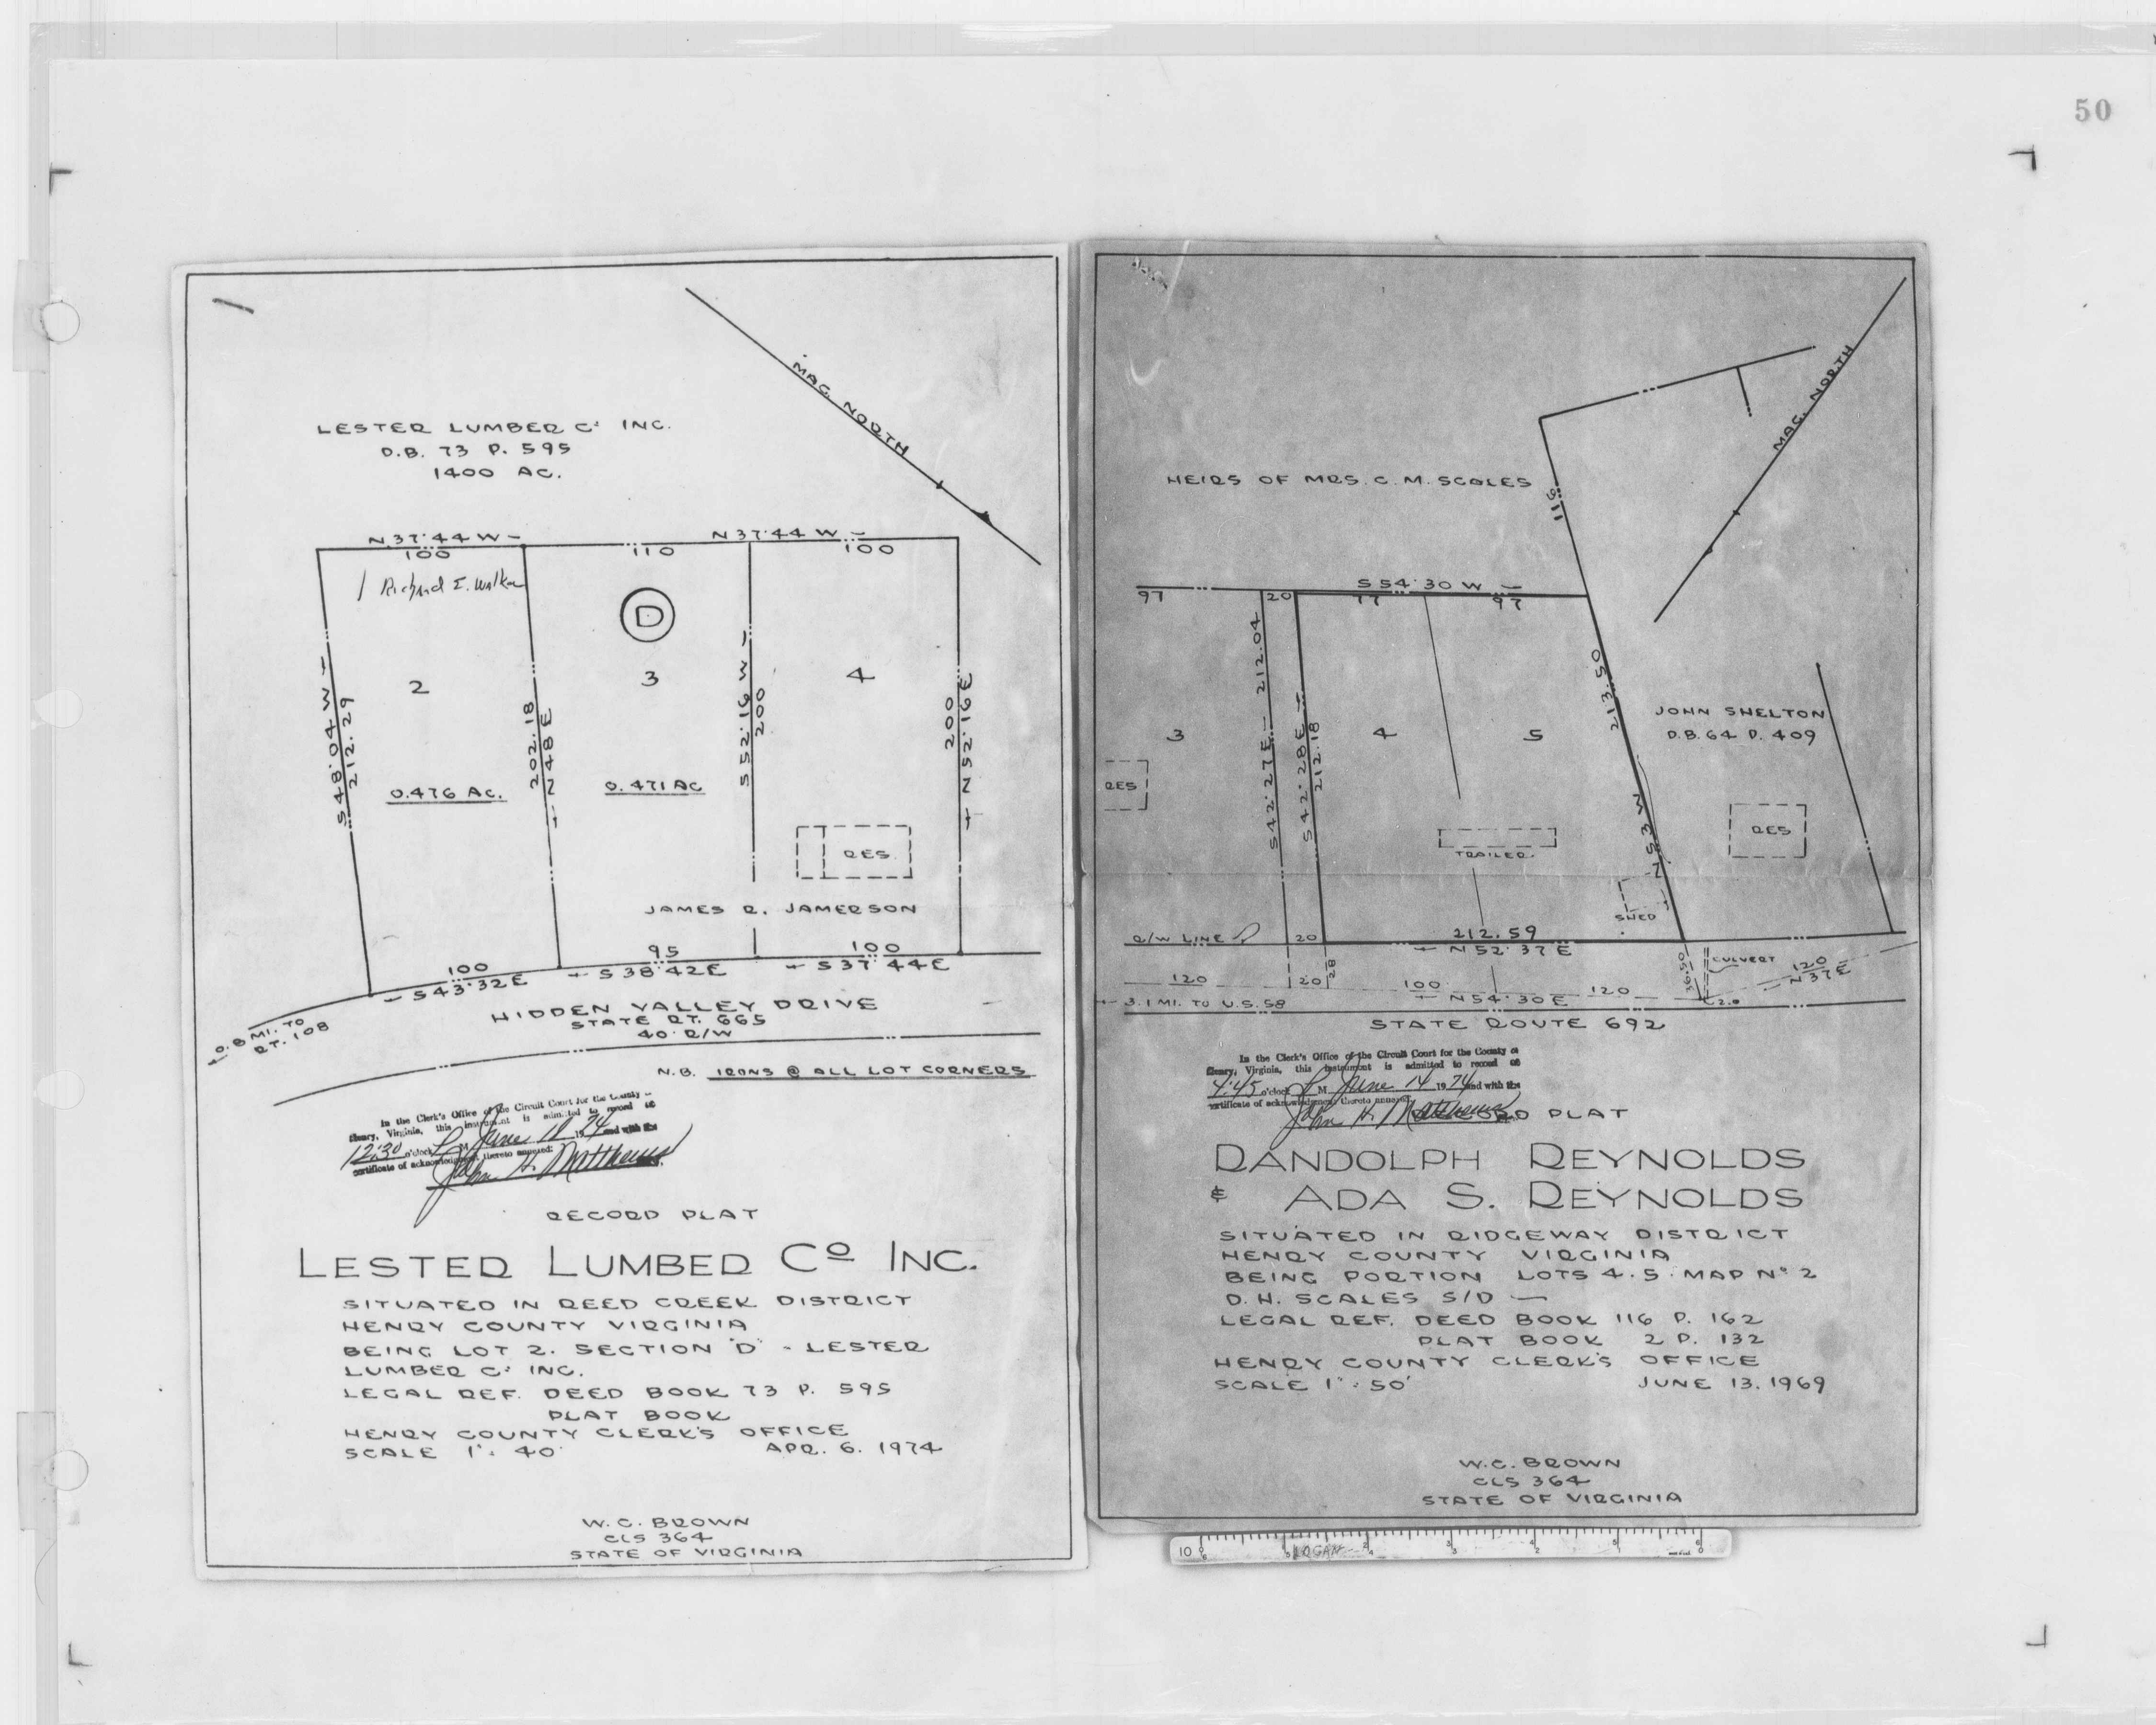 50
MAG. NORTH
LESTER LUMBER Cº INC.
D.B. 73 P. 595
1400 AC.
N 37·44 W
100
110
N 37·44 W
100
Richard E. Walker
D
2
3
4
S 48·04 W
212.29
202.18
N 48 E
S 52·16 W
200
200
N 52·16 E
0.476 AC.
0.471 AC
RES.
JAMES R. JAMERSON
100
S 43·32 E
95
S 38·42 E
100
S 37·44 E
HIDDEN VALLEY DRIVE
STATE RT. 665
40' R/W
0.8 MI. TO
RT. 108
N.B. IRONS @ ALL LOT CORNERS
In the Clerk's Office of the Circuit Court for the County of
Henry, Virginia, this instrument is admitted to record at
12:30 o'clock P M. June 1974 and with the
certificate of acknowledgment thereto annexed:
John H. Matthews
RECORD PLAT
LESTER LUMBER Cº INC.
SITUATED IN REED CREEK DISTRICT
HENRY COUNTY VIRGINIA
BEING LOT 2. SECTION "D" - LESTER
LUMBER Cº INC.
LEGAL REF. DEED BOOK 73 P. 595
PLAT BOOK
HENRY COUNTY CLERK'S OFFICE
SCALE 1": 40' APR. 6. 1974
W. C. BROWN
CLS 364
STATE OF VIRGINIA
MAG. NORTH
HEIRS OF MRS. C. M. SCALES
116
S 54·30 W
97
20
77
97
S 42·27 E 212.04
S 42·28 E
212.18
213.50
N 53 W
3
4
5
RES
JOHN SHELTON
D.B. 64 P. 409
RES
TRAILER
SHED
R/W LINE
20
212.59
N 52·37 E
120
20
28
100
N 54·30 E
120
36.50
CULVERT
2.0
120
N 37 E
3.1 MI. TO U.S. 58
STATE ROUTE 692
In the Clerk's Office of the Circuit Court for the County of
Henry, Virginia, this instrument is admitted to record at
4:45 o'clock P M. June 14 1974 and with the
certificate of acknowledgment thereto annexed:
John H. Matthews
RECORD PLAT
RANDOLPH REYNOLDS
& ADA S. REYNOLDS
SITUATED IN RIDGEWAY DISTRICT
HENRY COUNTY VIRGINIA
BEING PORTION LOTS 4.5. MAP Nº 2
D. H. SCALES S/D
LEGAL REF. DEED BOOK 116 P. 162
PLAT BOOK 2 P. 132
HENRY COUNTY CLERK'S OFFICE
SCALE 1": 50' JUNE 13. 1969
W. C. BROWN
CLS 364
STATE OF VIRGINIA
10
LOGAN